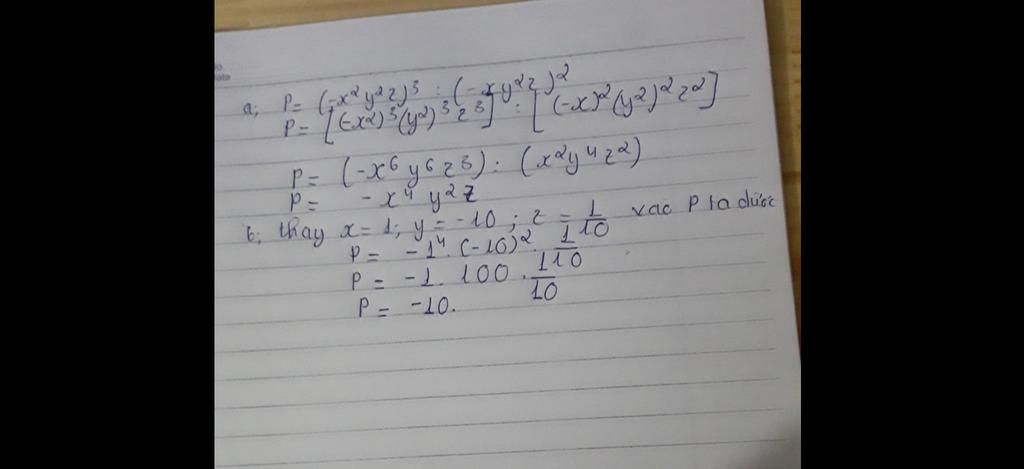 a; P = (-x²y²z)³ : (-xy²z)²
P = [(-x²)³(y²)³z³] : [(-x)²(y²)²z²]
P = (-x⁶y⁶z³) : (x²y⁴z²)
P = -x⁴y²z
b; thay x = 1; y = -10; z = 1/10 vào P ta được
P = -1⁴. (-10)². 1/10
P = -1. 100 . 1/10
P = -10.